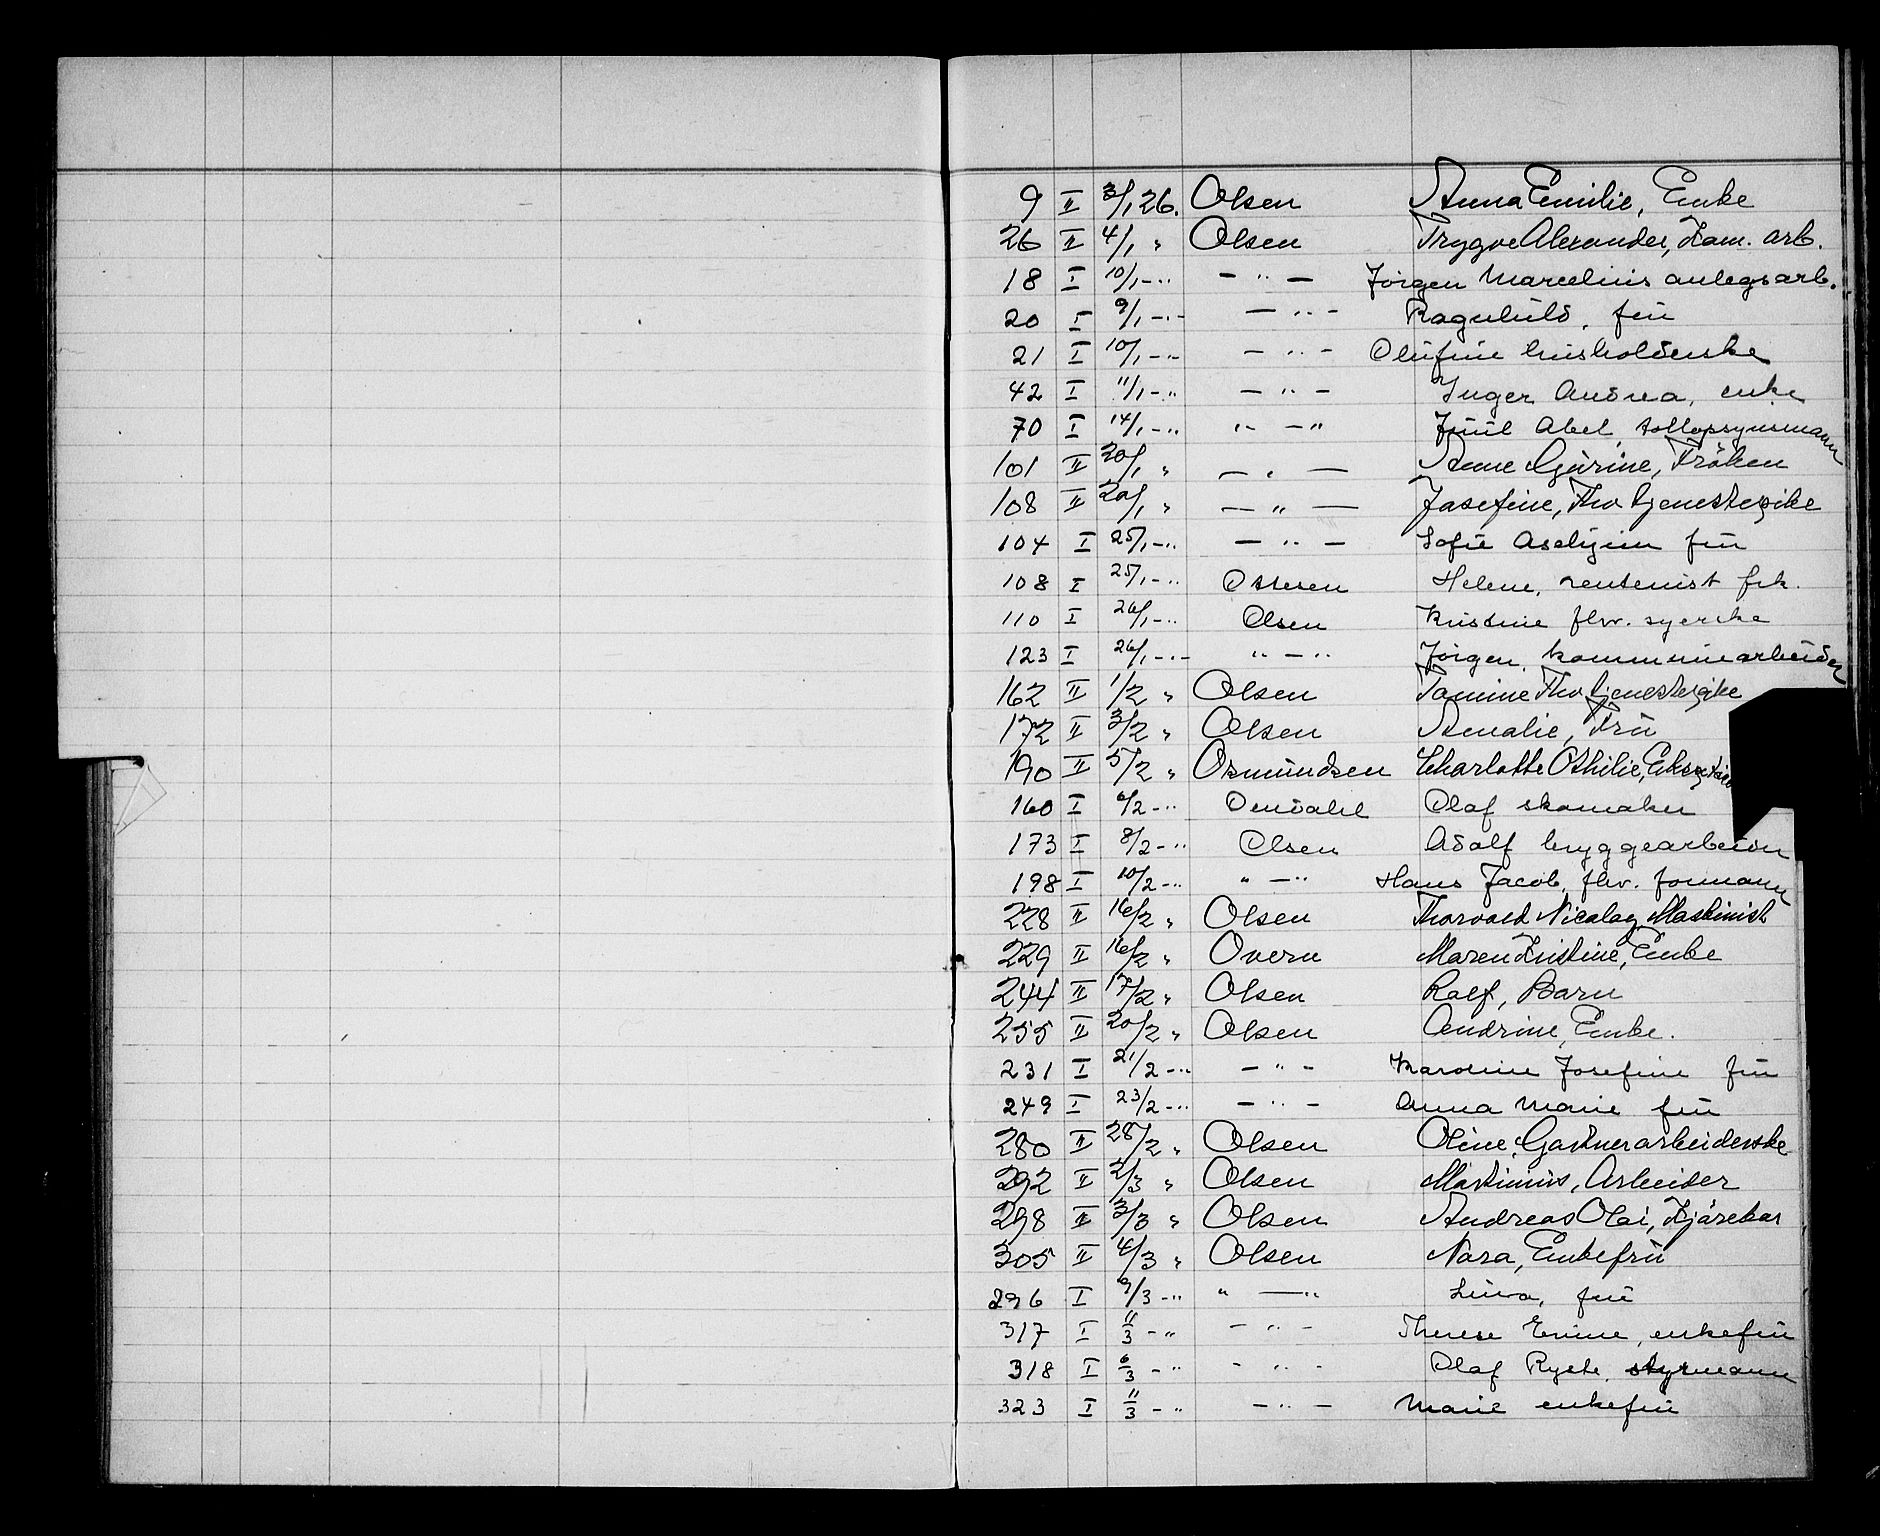 9 II 3/1 26. Olsen Anna Emilie, Enke
26 II 4/1 " Olsen Trygve Alexander, Kom. arb.
18 I 10/1 -" - " - Jörgen Marcelius anlegsarb.
20 I 9/1 -"- - " - Ragnhild, frü
21 I 10/1 -" - " - Olüfine hüsholderske
42 I 11/1 -" - " - Inger Andrea, enke
70 I 14/1 -" "- -" Abel tollopsynsmann
101 II 20/1 " - " - Anne Gürine, Fröken
108 II 20/1 " - " - Josefine, Fhv tjenestepike
104 I 25/1 -" - " - Sofie frü
108 I 25/1 -" Ottesen Helene, rentenist frk.
110 I 26/1 -" Olsen Kristine fhv. syerske
123 I 26/1 -"- " - " Jörgen, kommünearbeider
162 II 1/2 " Olsen Tomine Fhv tjenestepike
172 II 3/2 " Olsen Amalie, Frü
190 II 5/2 " Osmündsen Charlotte Othilie,
160 I 6/2 -" Olaf skomaker
173 I 8/2 -" Olsen Adolf bryggearbeider
198 I 10/2 -" " - " Hans Jacob, fhv. formann
228 II 16/2 " Olsen Thorvald Nicolay, Maskinist
229 II 16/2 " Overn Maren Kristine, Enke
244 II 17/2 " Olsen Rolf, Barn
255 II 20/2 " Olsen Andrine, Enke.
231 I 21/2 -" - " - Karoline Josefine frü
249 I 23/2 -" - " - Anna Marie frü
280 II 28/2 " Olsen Oline, Gartnerarbeiderske
292 II 2/3 " Olsen Martinius, Arbeider
298 II 3/3 " Olsen Andreas Olai, Kjörekar
305 II 4/3 " Olsen Nora, Enkefrü
296 I 9/3 -" " - " frü
317 I 11/3 -" - " - Therese enkefrü
318 I 6/3 -" - " - Olaf styrmann
323 I 11/3 -" - " - Marie enkefrü